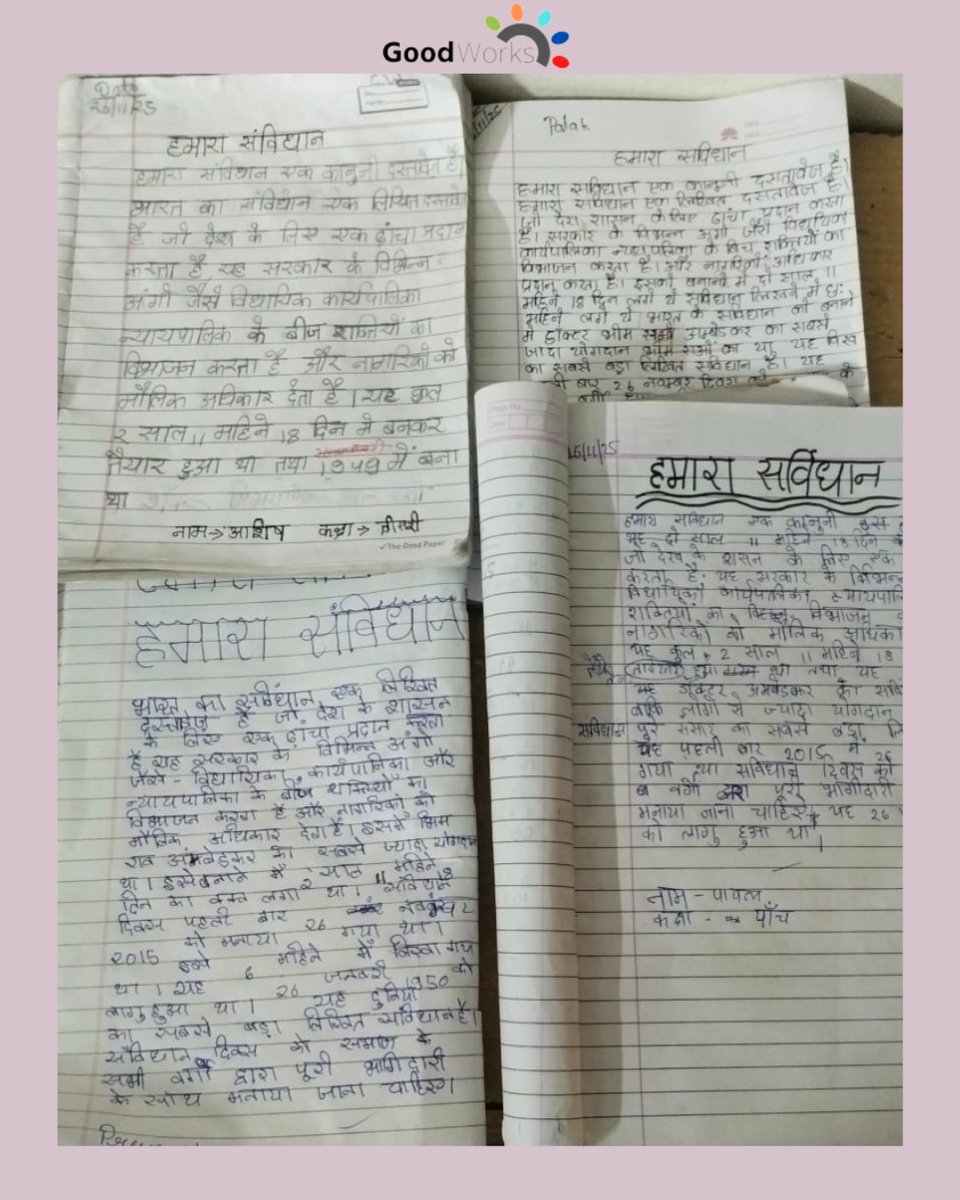 GoodWorks
Date
26/11/25
हमारा संविधान
हमारा संविधान एक कानुनी दस्तावेज है।
भारत का संविधान ऐक लिखित दस्तावेज
है जो देश के लिए एक ढांचा प्रदान
करता है, यह सरकार के विभिन्न
अंगो जैसे विद्यायिक कार्यपालिका
न्यायपालिक के बीज शक्तियों का
विभाजन करता है और नागरिकों को
मौलिक अधिकार देता है। यह कुल
2 साल 11 महिने 18 दिन मे बनकर
तैयार हुआ था तथा 1949 में बना
था
नाम→आशिष कक्षा→ तीसरी
The Good Paper
Palak
हमारा सविधान
हमारा सविधान एक कानुनी दसतावेज है।
हमारा सविधान एक लिखित दसतावेज है।
जो देश शासन के लिए ढांचा प्रदान करता
है। सरकार के विभन्न अंगो जैसे विद्यायिका
कार्यपालिका न्यायपालिका के बिच शक्तियों का
विभाजन करता है। और नागरिको अधिकार
प्रदान करता है। इसको बनाने में दो साल 11
महिने 18 दिन लगे थे सविधान लिखने में छः
महिने लगे थे। भारत के सविधान को बनाने
में डॉक्टर भीम अम्बेडकर का सबसे
जादा योगदान भीम राओ का था यह विश्व
का सबसे बड़ा लिखित सविधान है। यह
बार 26 नवम्बर दिवश को
हमारा संविधान
भारत का संविधान एक लिखित
दस्तावेज है जो देश के शासन
के लिए एक ढांचा प्रदान करता
है यह सरकार के विभिन्न अंगो
जैसे - विद्यायिका, कार्यपालिका और
न्यायपालिका के बीज शक्तियों का
विभाजन करता है और नागरिकों को
मौलिक अधिकार देता है। इसमें भिम
राव अंमबेडकर का सबसे ज्यादा योगदान
था। इसे बनाने में 2 साल 11 महिने 18
दिन का वक्त लगा था। संविधान
दिवस पहली बार 26 नवम्बर
2015 को मनाया गया था।
इसे 6 महिने में लिखा गया
था। यह 26 जनवरी 1950 को
लागु हुआ था। यह दुनिया
का सबसे बड़ा लिखित संविधान है।
संविधान दिवस को समाज के
सभी वर्गो द्वारा पूरी भागिदारी
के साथ मनाया जाना चाहिए।
हमारा सर्विधान
हमारा सविधान एक कानुनी दस
यह दो साल 11 महिने 18 दिन
जो देश के शासन के लिए एक
करता है; यह सरकार के विभिन्न
विधायिका कार्यपालिका न्यायपालि
शक्तियों का विभाजन
नागरिकों को मौलिक अधिका
यह कुल 2 साल 11 महिने 18
हुआ था तथा यह
डॉक्टर अमबेडकर का सबि
बाकि लोगो से ज्यादा योगदान
संविधान पुरे संसार का सबसे बड़ा लि
यह पहली बार 2015 में 26
गया था सविधान दिवस को
व वर्गो द्वारा पूरी भागीदारी
मनाया जाना चाहिए यह 26
को लागु हुआ था।
नाम - पायल
कक्षा - पाँच